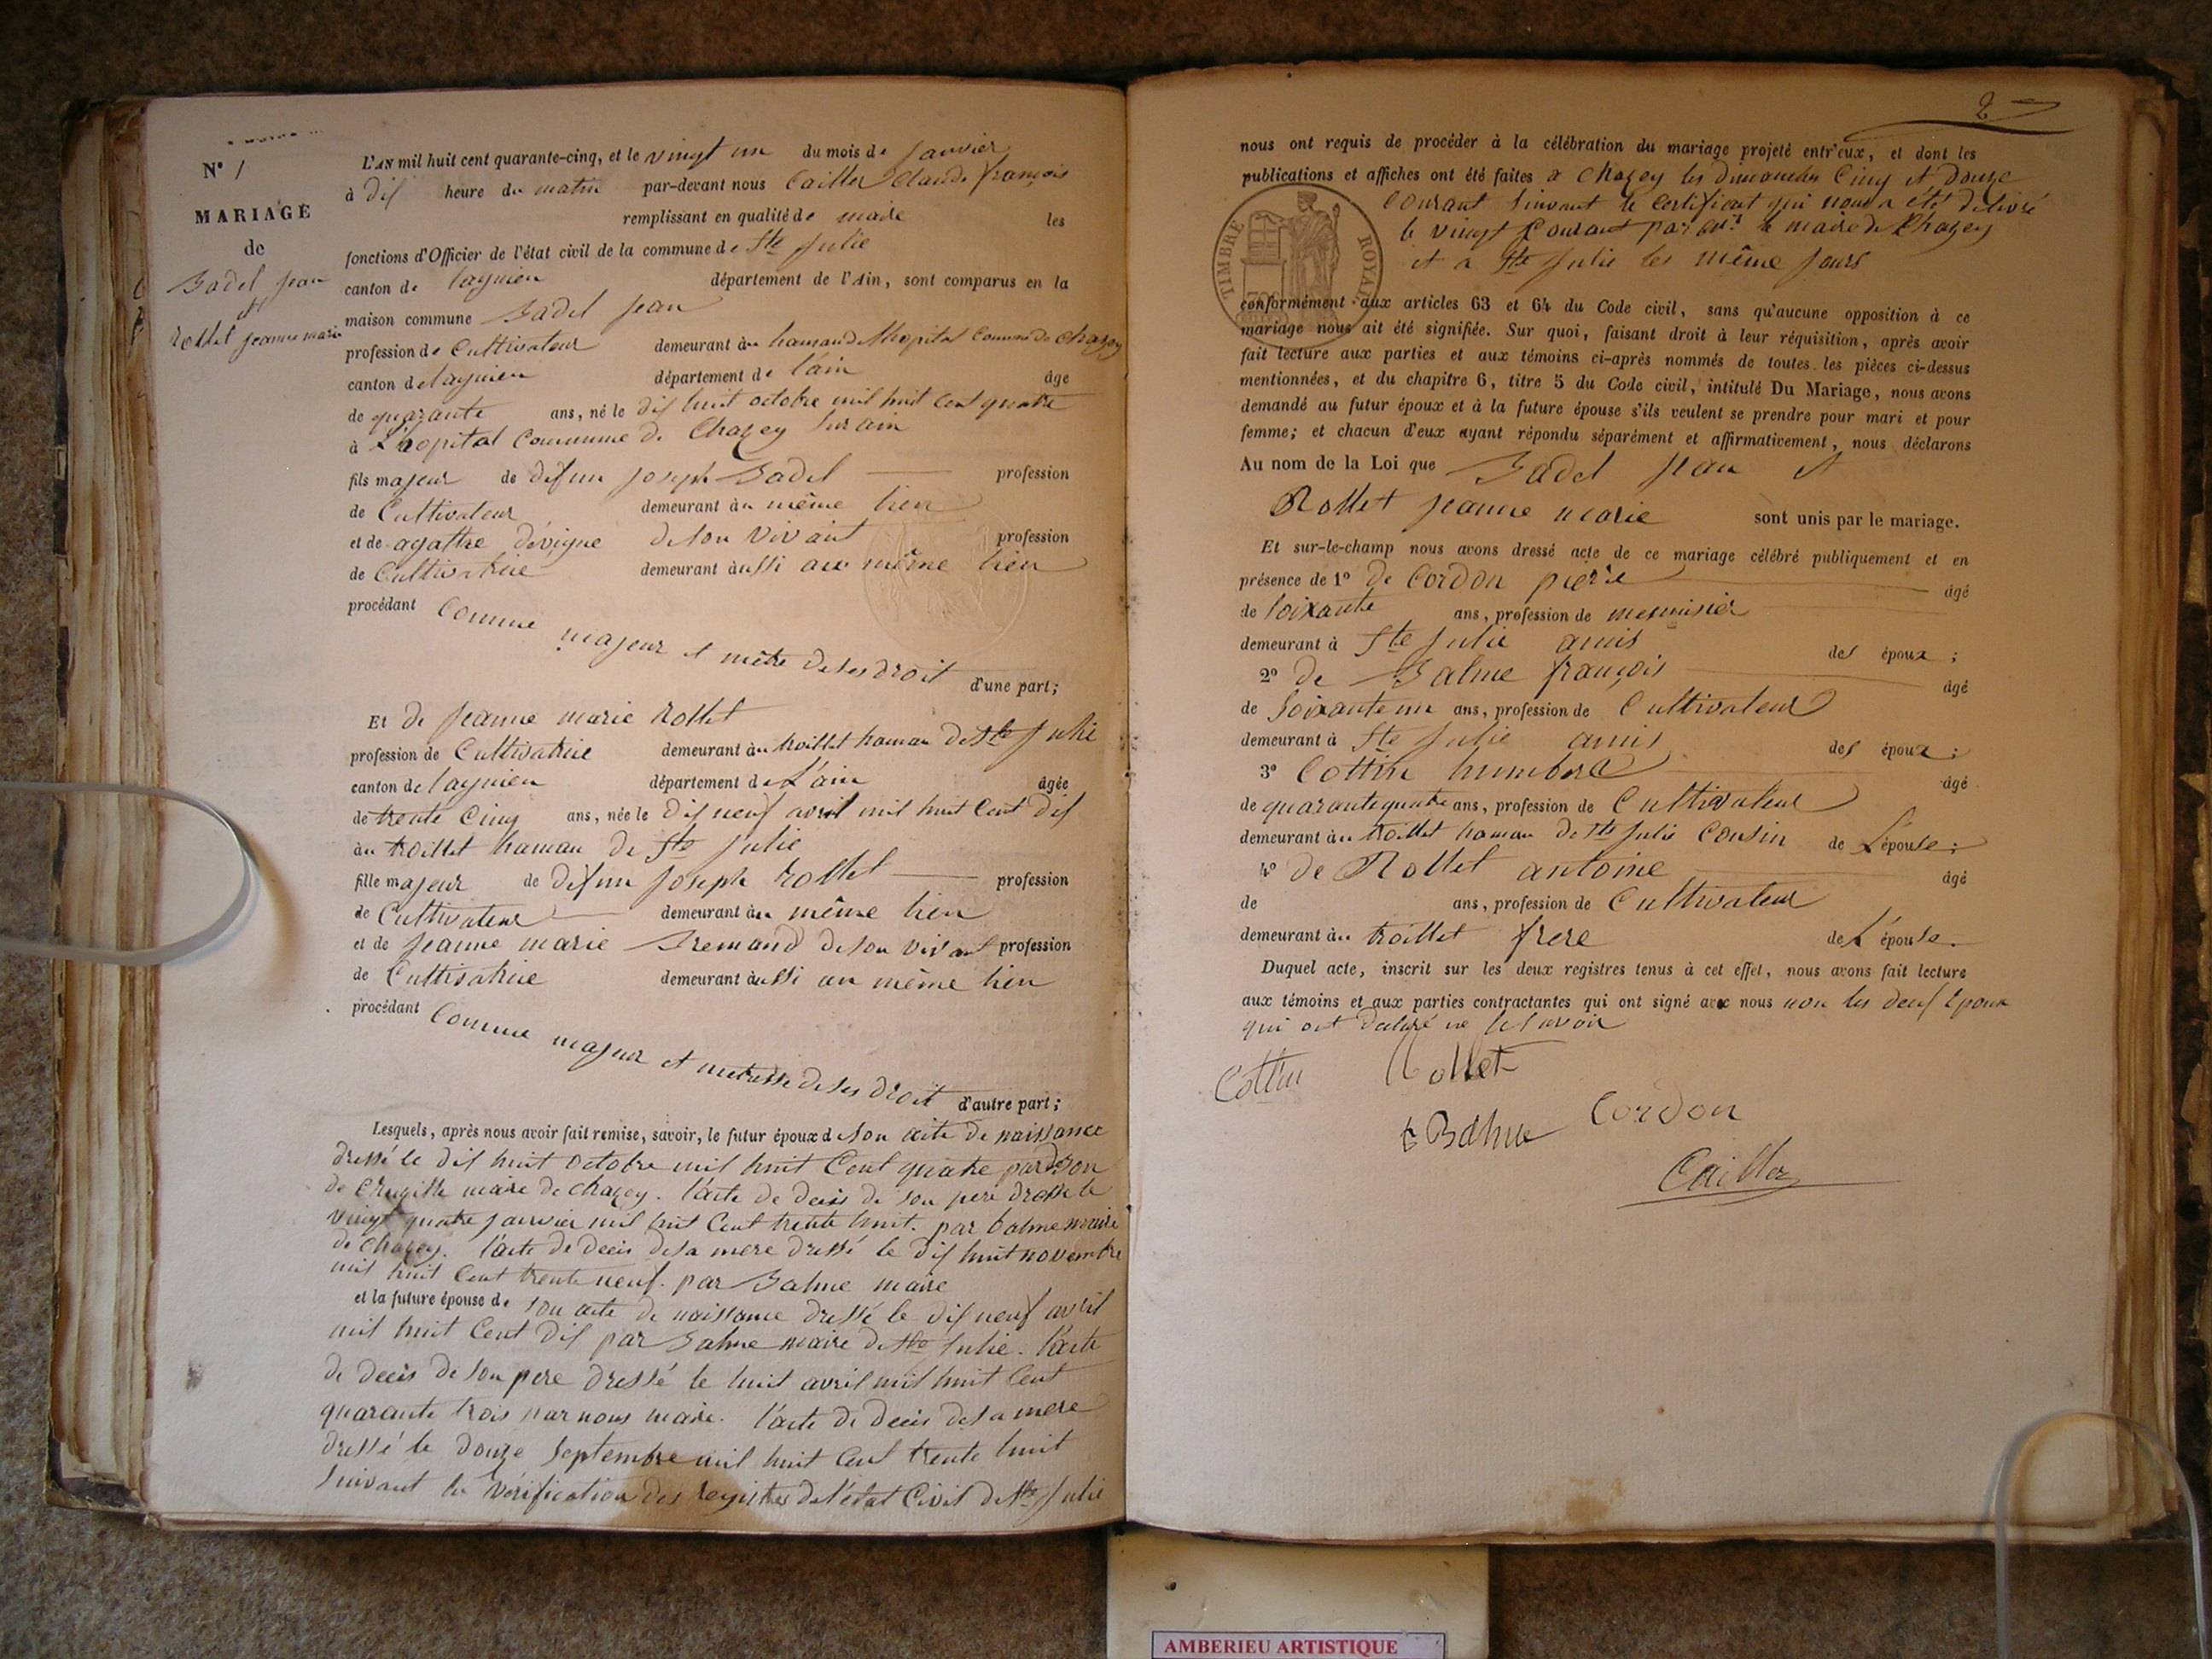 N° 1
MARIAGE
de
Badel jean
et
rollet jeanne marie
L'AN mil huit cent quarante-cinq, et le vingt un du mois de janvier
à dix heure du matin par-devant nous Cailler Claude françois
remplissant en qualité de maire les
fonctions d'Officier de l'état civil de la commune de Ste Julie
canton de lagnieu département de l'Ain, sont comparus en la
maison commune Badel jean
profession de Cultivateur demeurant au hamau de lhopital Commune de Chazey
canton de lagnieu département de l'ain âge
de quarante ans, né le dix huit octobre mil huit cent quatre
à L'hopital Commune de Chazey sur ain
fils majeur de defun joseph Badel profession
de Cultivateur demeurant au même lieu
et de agathe dévigne de son vivant profession
de Cultivatrice demeurant aussi au même lieu
procédant Comme majeur et mètre de ses droit
d'une part;
Et de jeanne marie Rollet
profession de Cultivatrice demeurant au troillet hamau de Ste Julie
canton de lagnieu département de L'ain âgée
de trente Cinq ans, née le dix neuf avril mil huit Cent dix
au troillet hamau de Ste Julie
fille majeur de defun joseph rollet profession
de Cultivateur demeurant au même lieu
et de jeanne marie Bremand de son vivant profession
de Cultivatrice demeurant aussi au même lieu
procédant Comme majeur et metresse de ses droit
d'autre part;
Lesquels, après nous avoir fait remise, savoir, le futur époux de son acte de naissance
dressé le dix huit octobre mil huit Cent quatre par
de maire de Chazey. l'acte de decés de son pere dressé le
vingt quatre janvier mil huit Cent trente huit. par balme maire
de Chazey. l'acte de decés de sa mere dressé le dix huit novembre
mil huit Cent trente neuf. par Balme maire
et la future épouse de son acte de naissance dressé le dix neuf avril
mil huit Cent dix par Balme maire de Ste Julie. l'acte
de decés de son pere dressé le huit avril mil huit Cent
quarante trois par nous maire. l'acte de decés de sa mere
dressé le douze Septembre mil huit Cent trente huit
suivant la vérification des registres de l'état Civil de Ste Julie
2
nous ont requis de procéder à la célébration du mariage projeté entr'eux, et dont les
publications et affiches ont été faites à Chazey les dimanches Cinq et douze
Courant suivant le certificat qui nous a été délivré
le vingt Courant par le maire de Chazey
et a Ste Julie les même jours
TIMBRE ROYAL
conformément aux articles 63 et 64 du Code civil, sans qu'aucune opposition à ce
mariage nous ait été signifiée. Sur quoi, faisant droit à leur réquisition, après avoir
fait lecture aux parties et aux témoins ci-après nommés de toutes les pièces ci-dessus
mentionnées, et du chapitre 6, titre 5 du Code civil, intitulé Du Mariage, nous avons
demandé au futur époux et à la future épouse s'ils veulent se prendre pour mari et pour
femme; et chacun d'eux ayant répondu séparément et affirmativement, nous déclarons
Au nom de la Loi que Badel jean et
Rollet jeanne marie sont unis par le mariage.
Et sur-le-champ nous avons dressé acte de ce mariage célébré publiquement et en
présence de 1° de Cordon pierre âgé
de soixante ans, profession de menuisier
demeurant à Ste Julie amis des époux;
2° de Balme françois âgé
de soixante un ans, profession de Cultivateur
demeurant à Ste Julie amis des époux;
3° Cottin humbert âgé
de quarante quatre ans, profession de Cultivateur
demeurant au troillet hamau de Ste Julie Cousin de L'épouse;
4° de Rollet antoine âgé
de ans, profession de Cultivateur
demeurant au troillet frere de L'épouse.
Duquel acte, inscrit sur les deux registres tenus à cet effet, nous avons fait lecture
aux témoins et aux parties contractantes qui ont signé avec nous non les deux Epoux
qui ont déclaré ne le savoir
Cottin Rollet
Balme Cordon
Cailler
AMBERIEU ARTISTIQUE